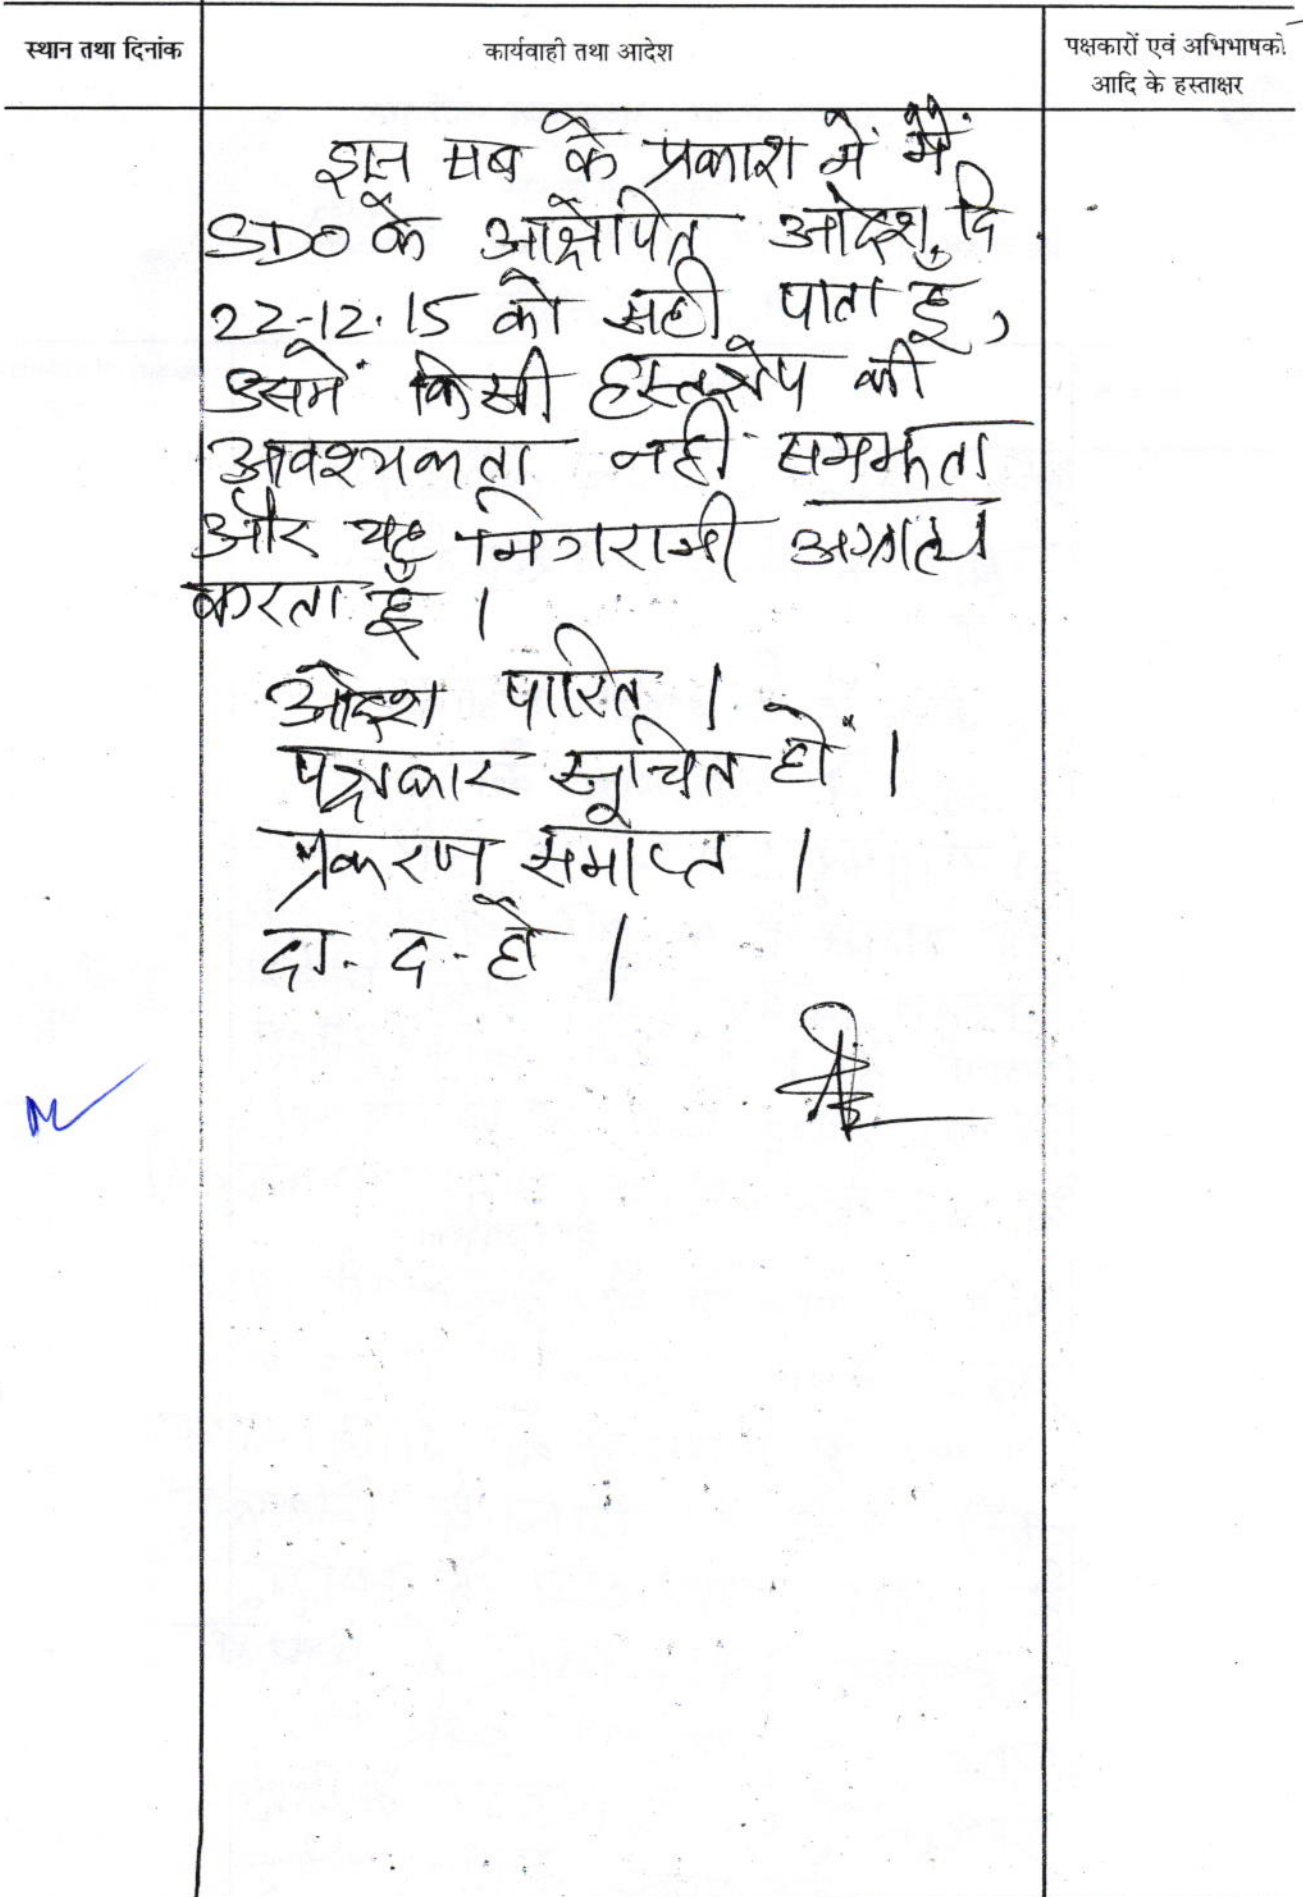 स्थान तथा दिनांक
कार्यवाही तथा आदेश
पक्षकारों एवं अभिभाषकों
आदि के हस्ताक्षर
इन सब के प्रकाश में मैं
SDO के आक्षेपित आदेश, दि.
22-12-15 को सही पाता हूँ,
उसमें किसी हस्तक्षेप की
आवश्यकता नहीं समझता
और यह निगरानी अग्राह्य
करता हूँ ।
आदेश पारित ।
पक्षकार सूचित हों ।
प्रकरण समाप्त ।
दा. द. हो ।